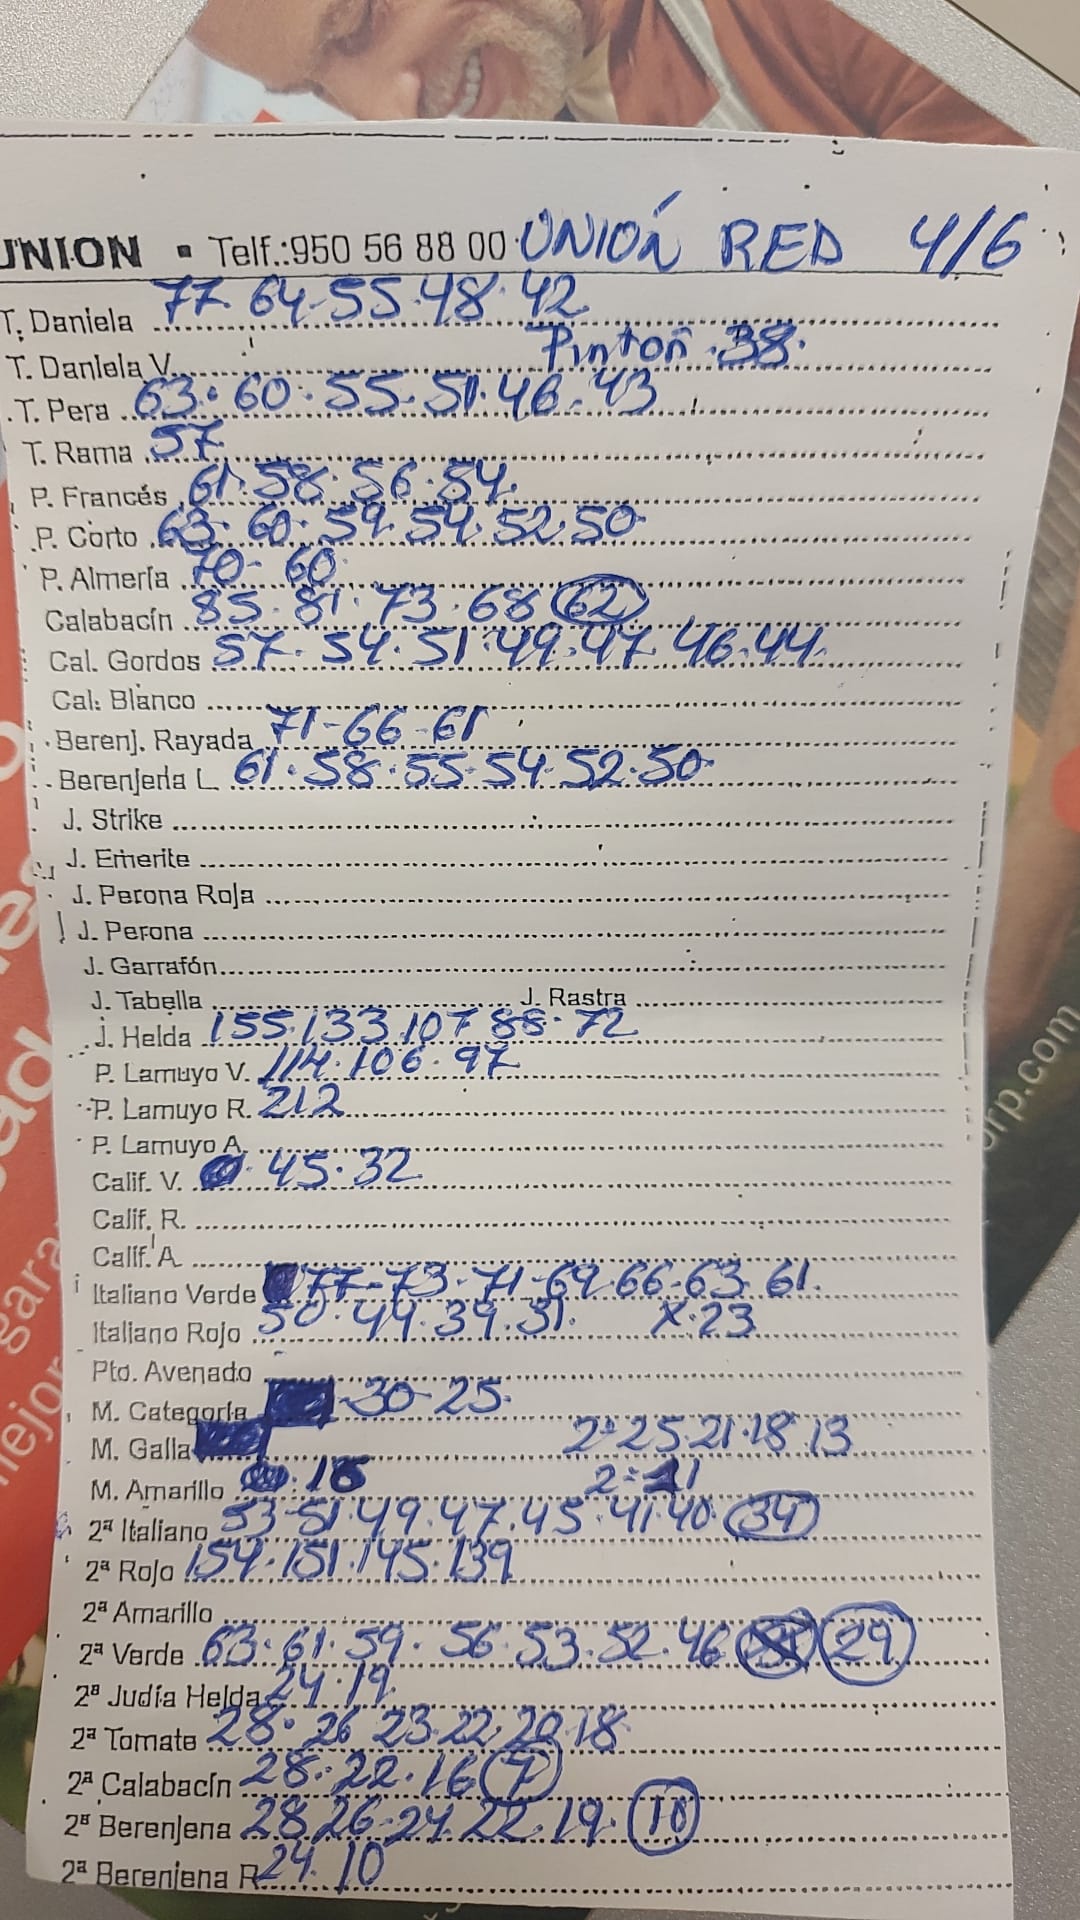 UNION ▪ Telf.:950 56 88 00 UNIÓN RED 4/6
T. Daniela 77. 64-55.48.42
T. Daniela V. Pinton .38.
T. Pera 63. 60. 55. 51. 46. 43
T. Rama 57
P. Francés 61. 58. 56. 54.
P. Corto 63. 60. 59. 54. 52. 50
P. Almería 70- 60
Calabacín 85. 81. 73. 68 62
Cal. Gordos 57. 54. 51. 49. 47. 46. 44.
Cal. Blanco
Berenj. Rayada 71-66-61
Berenjena L. 61. 58. 55. 54. 52. 50
J. Strike
J. Emerite
J. Perona Roja
J. Perona
J. Garrafón
J. Tabella J. Rastra
J. Helda 155.133.107 88. 72
P. Lamuyo V. 114. 106. 97
P. Lamuyo R. 212
P. Lamuyo A.
Calif. V. 45. 32
Calif. R.
Calif. A
Italiano Verde 77-73-71-69-66-63. 61.
Italiano Rojo 50. 44. 39. 31. X. 23
Pto. Avenado
M. Categoría -30-25.
M. Galla 2=25.21.18 13
M. Amarillo 2=
2ª Italiano 53-51. 49. 47. 45. 41. 40. 34
2ª Rojo 154. 151. 145. 139
2ª Amarillo
2ª Verde 63. 61. 59. 56. 53. 52. 46 29
2ª Judía Helda 24. 19.
2ª Tomate 28. 26 23. 22. 20. 18
2ª Calabacín 28. 22. 16 7
2ª Berenjena 28 26-24. 22. 19. 10
2ª Berenjena R 24. 10
orp.com